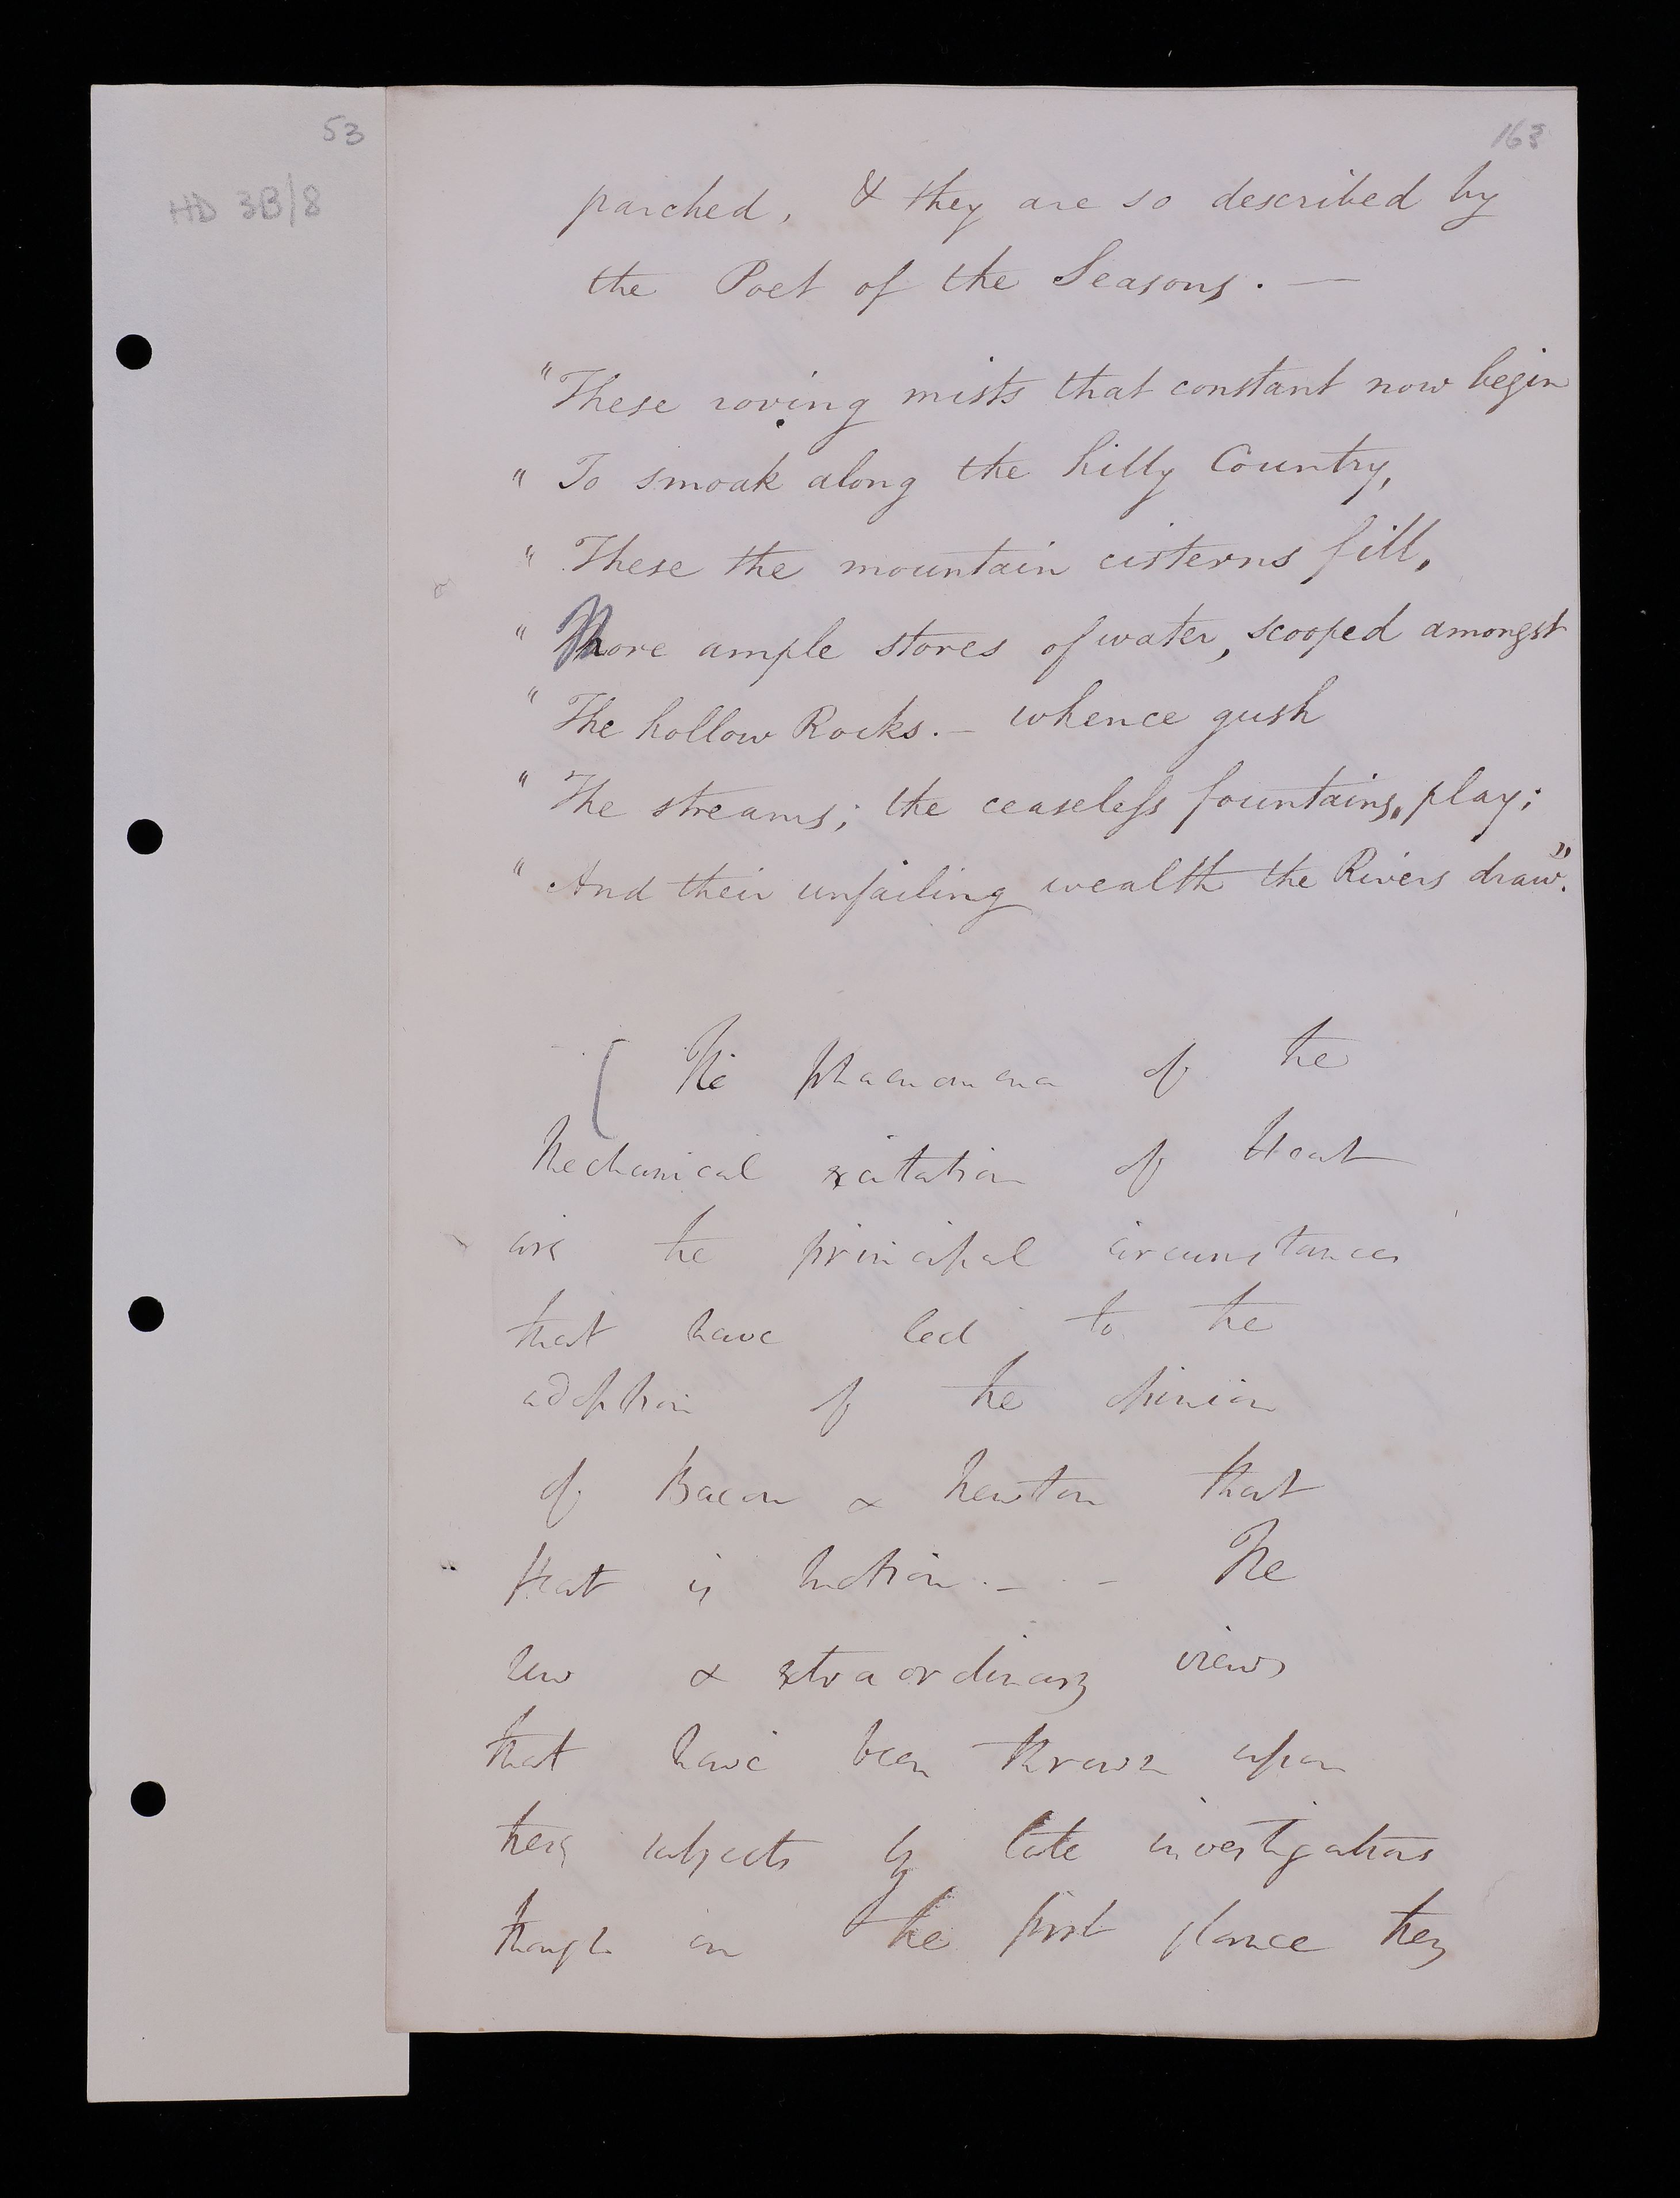 53
HD 3B/8
163
parched, & they are so described by
the Poet of the Seasons. —
"These roving mists that constant now begin
" To smoak along the hilly Country,
" These the mountain cisterns fill,
" More ample stores of water, scooped amongst
" The hollow Rocks. — whence gush
" The streams; the ceaseless fountains, play;
" And their unfailing wealth the Rivers draw."
[ The phaenomena of the
Mechanical excitation of Heat
are the principal circumstances
that have led to the
adoption of the opinion
of Bacon & Newton that
Heat is Motion. — - The
new & extraordinary views
that have been thrown upon
these subjects by late investigations
though on the first glance they